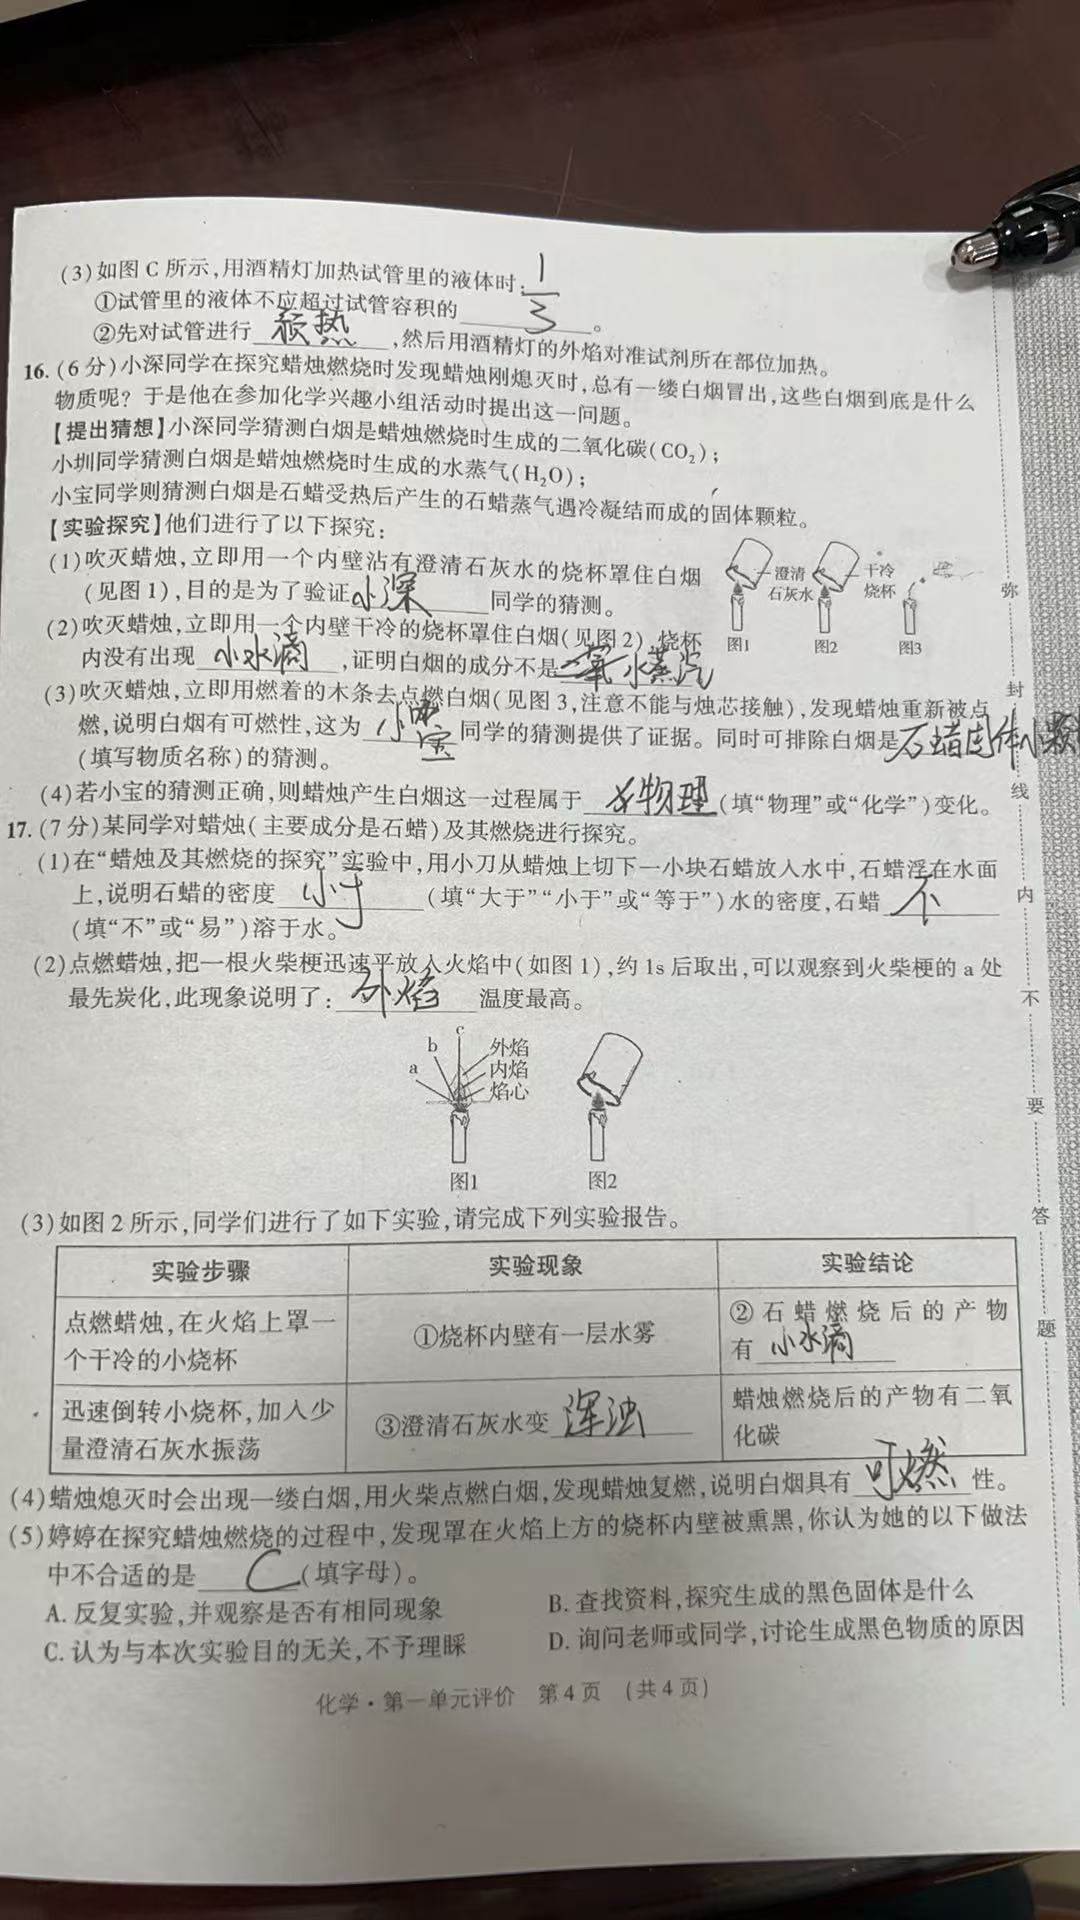 (3)如图C所示,用酒精灯加热试管里的液体时:
①试管里的液体不应超过试管容积的 1/3 。
②先对试管进行 预热 ,然后用酒精灯的外焰对准试剂所在部位加热。
16.(6分)小深同学在探究蜡烛燃烧时发现蜡烛刚熄灭时,总有一缕白烟冒出,这些白烟到底是什么
物质呢?于是他在参加化学兴趣小组活动时提出这一问题。
【提出猜想】小深同学猜测白烟是蜡烛燃烧时生成的二氧化碳(CO₂);
小圳同学猜测白烟是蜡烛燃烧时生成的水蒸气(H₂O);
小宝同学则猜测白烟是石蜡受热后产生的石蜡蒸气遇冷凝结而成的固体颗粒。
【实验探究】他们进行了以下探究:
(1)吹灭蜡烛,立即用一个内壁沾有澄清石灰水的烧杯罩住白烟
(见图1),目的是为了验证 小深 同学的猜测。
(2)吹灭蜡烛,立即用一个内壁干冷的烧杯罩住白烟(见图2),烧杯
内没有出现 小水滴 ,证明白烟的成分不是 水蒸汽
澄清
石灰水
干冷
烧杯
图1 图2 图3
(3)吹灭蜡烛,立即用燃着的木条去点燃白烟(见图3,注意不能与烛芯接触),发现蜡烛重新被点
燃,说明白烟有可燃性,这为 小宝 同学的猜测提供了证据。同时可排除白烟是 石蜡固体小颗
(填写物质名称)的猜测。
(4)若小宝的猜测正确,则蜡烛产生白烟这一过程属于 物理 (填“物理”或“化学”)变化。
17.(7分)某同学对蜡烛(主要成分是石蜡)及其燃烧进行探究。
(1)在“蜡烛及其燃烧的探究”实验中,用小刀从蜡烛上切下一小块石蜡放入水中,石蜡浮在水面
上,说明石蜡的密度 小于 (填“大于”“小于”或“等于”)水的密度,石蜡 不
(填“不”或“易”)溶于水。
(2)点燃蜡烛,把一根火柴梗迅速平放入火焰中(如图1),约1s后取出,可以观察到火柴梗的a处
最先炭化,此现象说明了: 外焰 温度最高。
a b c
外焰
内焰
焰心
图1 图2
(3)如图2所示,同学们进行了如下实验,请完成下列实验报告。
实验步骤 实验现象 实验结论
点燃蜡烛,在火焰上罩一
个干冷的小烧杯
①烧杯内壁有一层水雾
②石蜡燃烧后的产物
有 小水滴
迅速倒转小烧杯,加入少
量澄清石灰水振荡
③澄清石灰水变 浑浊
蜡烛燃烧后的产物有二氧
化碳
(4)蜡烛熄灭时会出现一缕白烟,用火柴点燃白烟,发现蜡烛复燃,说明白烟具有 可燃 性。
(5)婷婷在探究蜡烛燃烧的过程中,发现罩在火焰上方的烧杯内壁被熏黑,你认为她的以下做法
中不合适的是 C (填字母)。
A.反复实验,并观察是否有相同现象 B.查找资料,探究生成的黑色固体是什么
C.认为与本次实验目的无关,不予理睬 D.询问老师或同学,讨论生成黑色物质的原因
化学·第一单元评价 第4页 (共4页)
弥
封
线
内
不
要
答
题